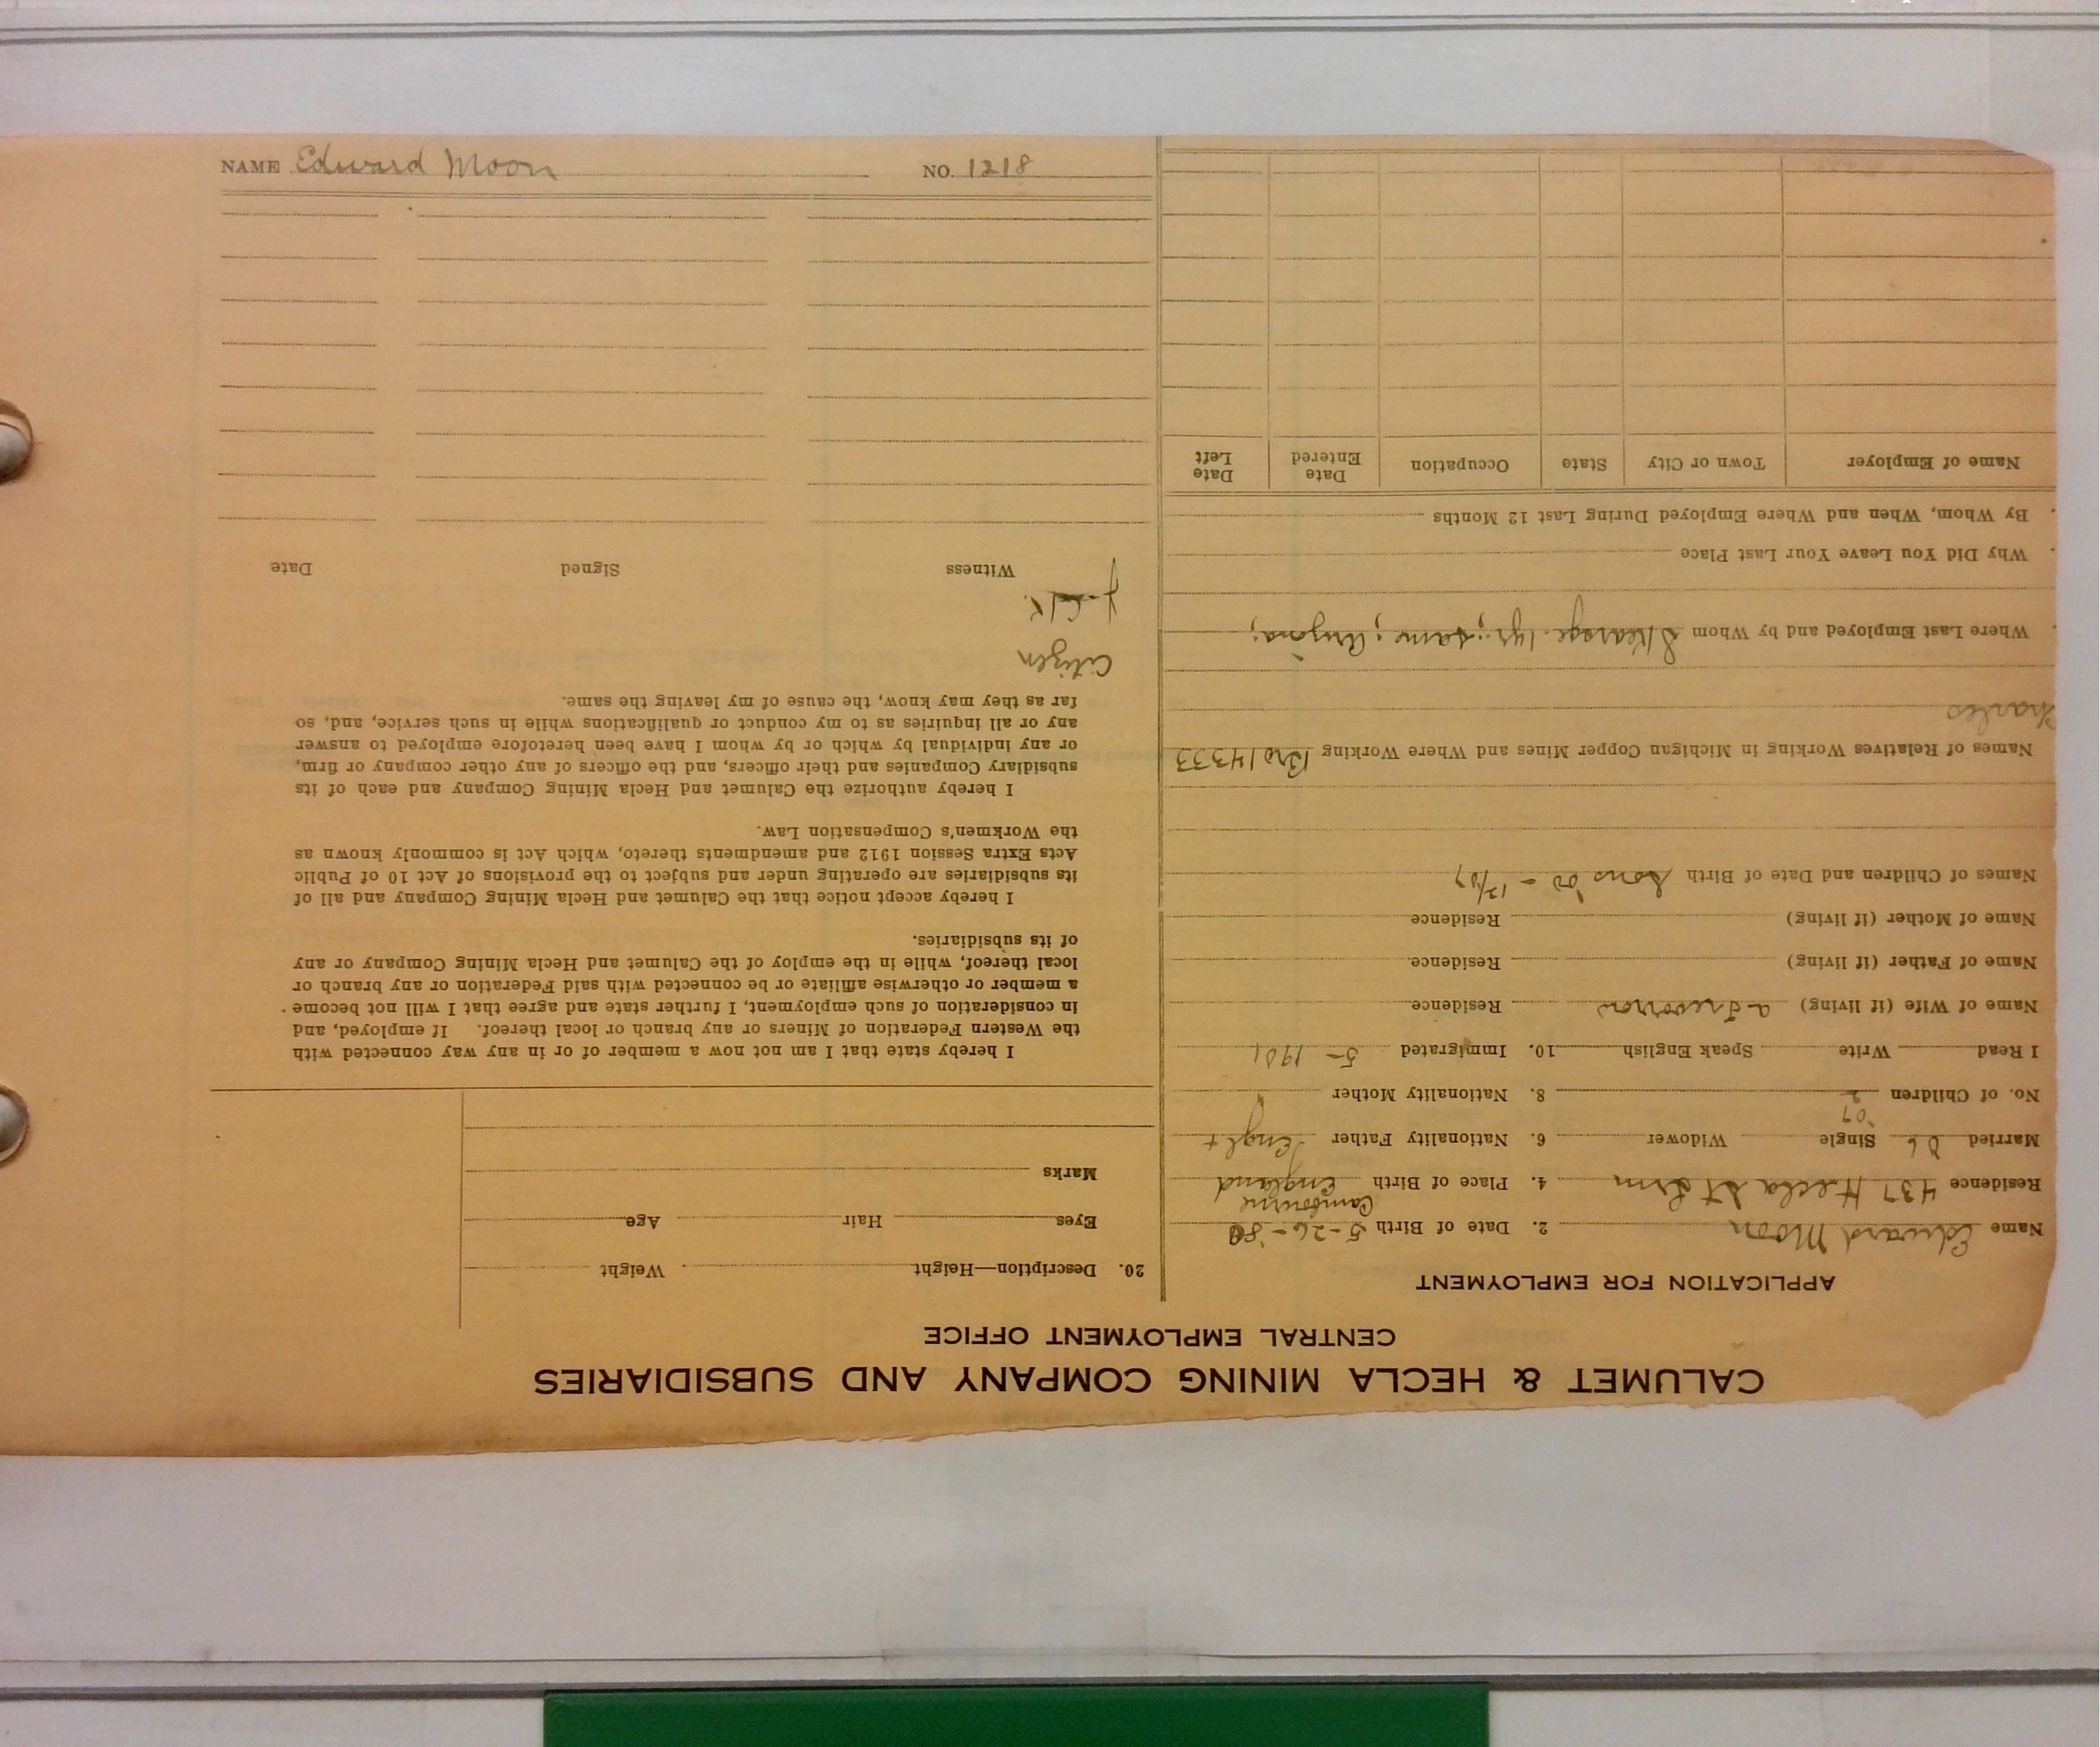 NAME Edward Moon NO. 1218
CALUMET & HECLA MINING COMPANY AND SUBSIDIARIES
CENTRAL EMPLOYMENT OFFICE
APPLICATION FOR EMPLOYMENT
Name Edward Moon 2. Date of Birth 5-26-80
Residence 437 Hecla St 4. Place of Birth Cambourne England
Married 06 Single Widower 6. Nationality Father Engl +
'07
No. of Children 2 8. Nationality Mother "
I Read Write Speak English 10. Immigrated 5- 1901
Name of Wife (if living) Residence
Name of Father (if living) Residence
Name of Mother (if living) Residence
Names of Children and Date of Birth Sons - 12/07
Names of Relatives Working in Michigan Copper Mines and Where Working Bro 14333
Charles
Where Last Employed and by Whom 1 yr.; same; Arizona;
Why Did You Leave Your Last Place
By Whom, When and Where Employed During Last 12 Months
Name of Employer Town or City State Occupation Date Entered Date Left
20. Description—Height Weight
Eyes Hair Age
Marks
I hereby state that I am not now a member of or in any way connected with
the Western Federation of Miners or any branch or local thereof. If employed, and
in consideration of such employment, I further state and agree that I will not become
a member or otherwise affiliate or be connected with said Federation or any branch or
local thereof, while in the employ of the Calumet and Hecla Mining Company or any
of its subsidiaries.
I hereby accept notice that the Calumet and Hecla Mining Company and all of
its subsidiaries are operating under and subject to the provisions of Act 10 of Public
Acts Extra Session 1912 and amendments thereto, which Act is commonly known as
the Workmen's Compensation Law.
I hereby authorize the Calumet and Hecla Mining Company and each of its
subsidiary Companies and their officers, and the officers of any other company or firm,
or any individual by which or by whom I have been heretofore employed to answer
any or all inquiries as to my conduct or qualifications while in such service, and, so
far as they may know, the cause of my leaving the same.
Citizen
Witness Signed Date